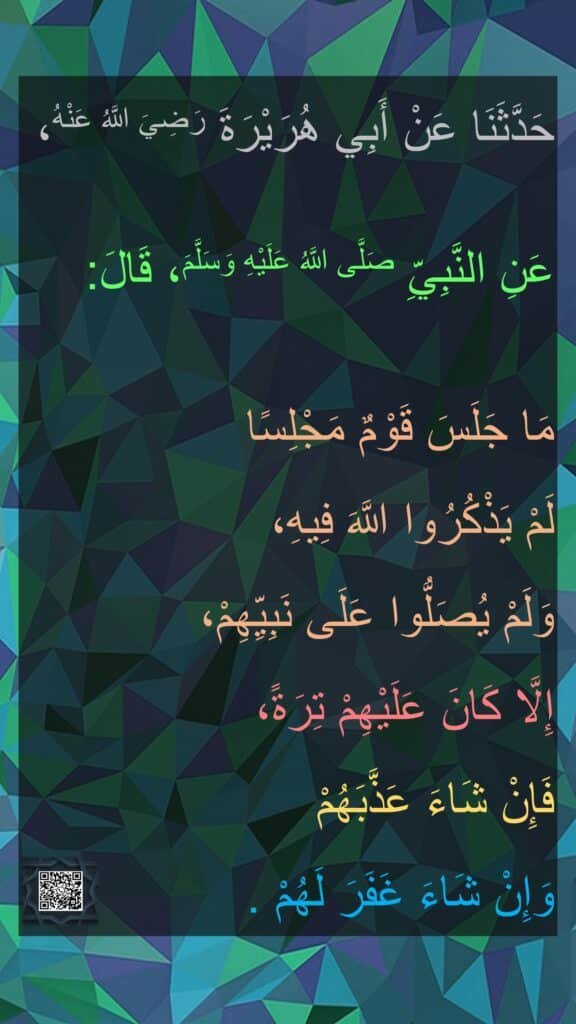 حَدَّثَنَا عَنْ أَبِي هُرَيْرَةَ رَضِيَ اللَّهُ عَنْهُ،
عَنِ النَّبِيِّ صَلَّى اللَّهُ عَلَيْهِ وَسَلَّمَ، قَالَ:
مَا جَلَسَ قَوْمٌ مَجْلِسًا
لَمْ يَذْكُرُوا اللَّهَ فِيهِ،
وَلَمْ يُصَلُّوا عَلَى نَبِيِّهِمْ،
إِلَّا كَانَ عَلَيْهِمْ تِرَةً،
فَإِنْ شَاءَ عَذَّبَهُمْ
وَإِنْ شَاءَ غَفَرَ لَهُمْ .